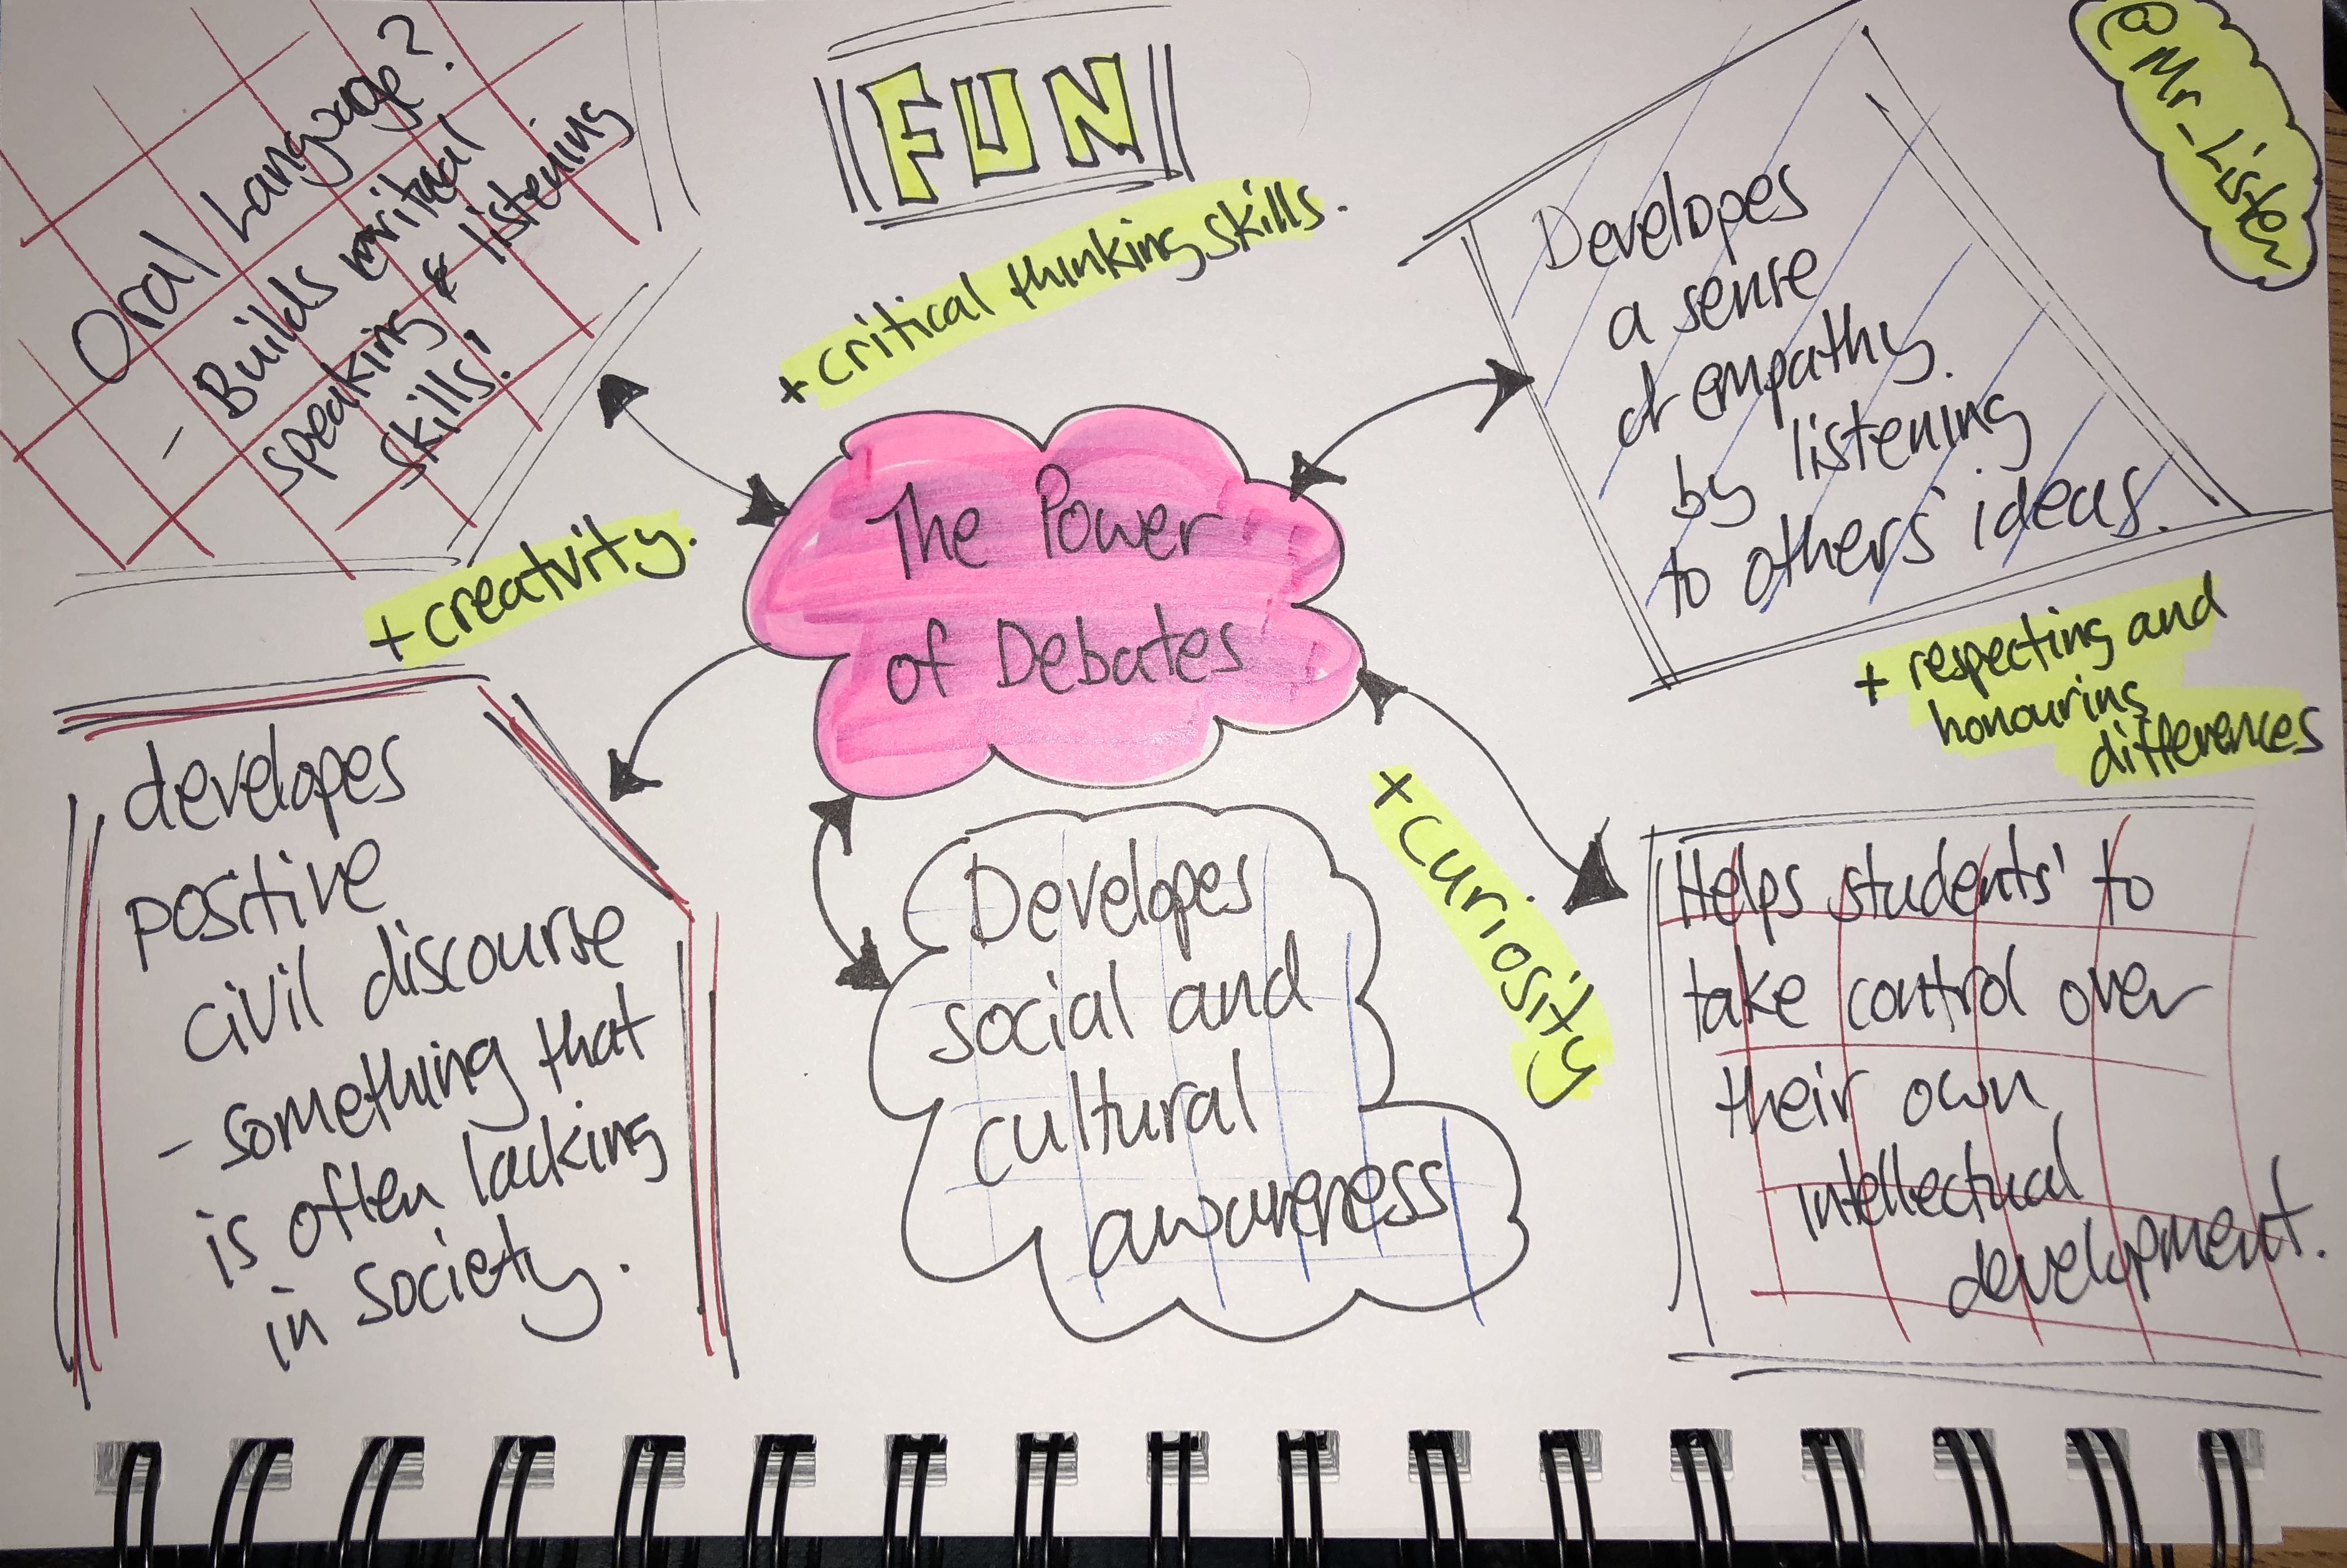 Oral Language?
- Builds critical
speaking & listening
skills!
FUN
+ critical thinking skills.
Developes
a sense
of empathy.
by listening
to others' ideas.
@Mr_Lister
+ creativity.
The Power
of Debates
+ respecting and
honouring
differences
developes
positive
civil discourse
- something that
is often lacking
in society.
Developes
social and
cultural
awareness
+ curiosity
Helps students' to
take control over
their own
intellectual
development.